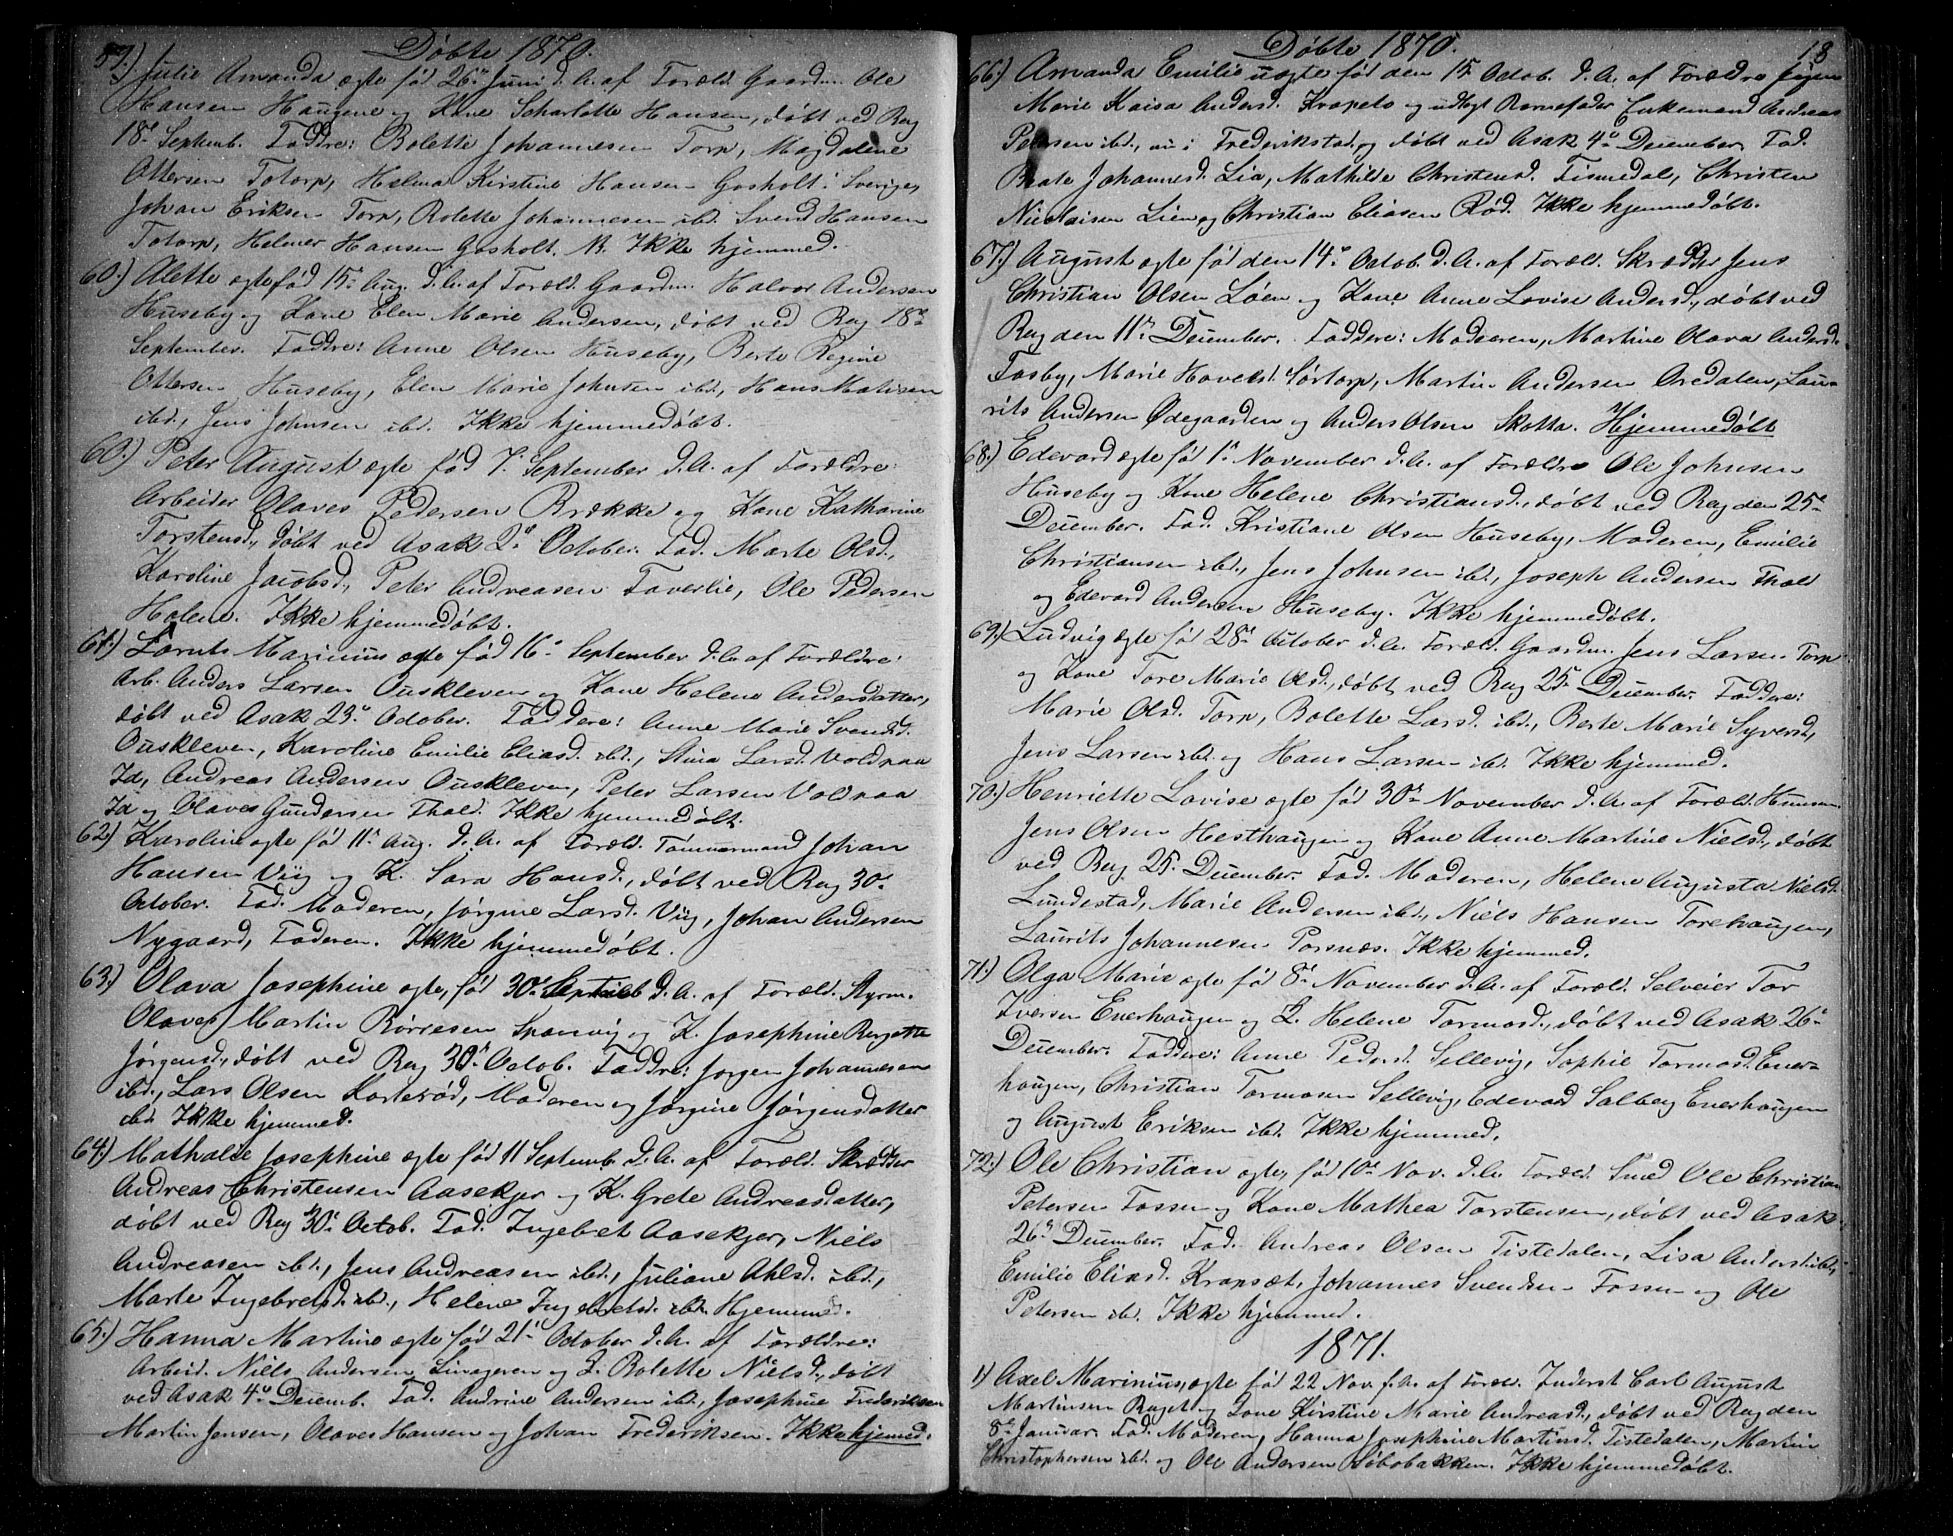 Døbte 1870.
59.) Julie Amanda ægte fød 26de Juni d. A. af Foræld. Gaardm. Ole
Hansen Haugene og Kone Scharlotte Hansen, døbt ved Rag
18de Septemb. Faddre: Bolette Johannesen Torp, Magdalene
Ottersen Totorp, Helma Kirstine Hansen Gosholt i Sverige,
Johan Eriksen Torp, Bolette Johannesen ibd. Svend Hansen
Totorp, Helmer Hansen Gosholt. Ikke hjemmed.
60.) Alette ægte fød 15de Aug. d. A. af Foræld. Gaardm. Halvor Andersen
Huseby og Kone Elen Marie Andersen, døbt ved Rag 18de
September. Faddre: Anne Olsen Huseby, Berte Regine
Ottersen Huseby, Elen Marie Johnsen ibd., Hans Matisen
ibd., Jens Johnsen ibd. Ikke hjemmedøbt.
60.) Peter August ægte fød 7. September d. A. af Forældre:
Arbeider Olaves Pedersen Brække og Kone Katharine
Torstensd., døbt ved Asak 2de October. Fad. Marte Olsd.,
Karoline Jacobsd., Peter Andreasen Taverlie, Ole Pedersen
Holene. Ikke hjemmedøbt.
61.) Laruts Marinius ægte fød 16de September d. A. af Forældre:
Arb. Anders Larsen Ouskleven og Kone Helene Andersdatter,
døbt ved Asak 23de October. Faddere: Anne Marie Svendsd.
Ouskleven, Karoline Emilie Eliasd. ibd., Stina Larsd. Voldraa
Id, Andreas Andersen Ouskleven, Peter Larsen Voldraa
Id og Olaves Gundersen Thold. Ikke hjemmedøbt.
62.) Karoline ægte fød 11te Aug. d. A. af Foræld. Tømmermand Johan
Hansen Viig og K. Sara Hansd., døbt ved Rag 30de
October. Fad. Moderen, Jørgine Larsd. Viig, Johan Andersen
Nygaard, Faderen. Ikke hjemmedøbt.
63.) Olava Josephine ægte, fød 30de Septeb d. A. af Foræld. Styrm.
Olaves Martin Børresen Sponvig og K. Josephine Bergette
Jørgensd., døbt ved Rag 30de Octob. Faddre: Jørgen Johannesen
ibd., Lars Olsen Korterød, Moderen og Jørgine Jørgensdatter
ibd. Ikke hjemmed.
64.) Mathalie Josephine ægte fød 11 Septemb. d. A. af Foræld. Skrædder
Andreas Christensen Aasekjer og K. Grete Andreasdatter,
døbt ved Rag 30de Octob. Fad. Ingebet Aasekjer, Niels
Andreasen ibd., Jens Andreasen ibd., Juliane Ahlsd. ibd.,
Marte Ingebretsd. ibd., Helene Ingebretsd. ibd. Hjemmed.
65.) Hanna Martine ægte fød 21de October d. A. af Forældre:
Arbeid. Niels Andersen og K. Bolette Nielsd., døbt
ved Asak 4de Decemb. Fad. Andrine Andersen ibd., Josephine Frederiksen
Martin Jensen, Olaves Hansen og Johan Frederiksen. Ikke hjemmed.
Døbte 1870.
18
66.) Amanda Emilie uægte fød den 15de Octob. d. A. af Forældre Pigen
Marie Kaisa Andersd. Krapeto og udlagt Barnefader Enkemand Andreas
Petersen ibd., nu i Frederikstad, og døbt ved Asak 4de December. Fad.
Beate Johannesd. Lia, Mathilde Christensd. Tismedal, Christen
Nicolaisen Lien og Christian Eliasen Rød. Ikke hjemmedøbt.
67.) August ægte fød den 14de Octob. d. A. af Foræld. Skrædder Jens
Christian Olsen Løen og Kone Anne Lovise Andersd., døbt ved
Rag den 11te December. Faddere: Moderen, Martine Olava Andersd.
Fosby, Marie Hovelsd. Sørtorp, Martin Andersen Oredalen, Lau-
rits Andersen Ødegaarden og Anders Olsen Skotta. Hjemmedøbt
68.) Edevard ægte fød 1de November d. A. af Forældre Ole Johnsen
Huseby og Kone Helene Christiansd., døbt ved Rag den 25de
December. Fad. Kristiane Olsen Huseby, Moderen, Emilie
Christiansen ibd., Jens Johnsen ibd., Joseph Andersen Thold
og Edevard Andersen Huseby. Ikke hjemmedøbt.
69.) Ludvig ægte fød 28de October d. A. Foræld. Gaardm. Jens Larsen Torp
og Kone Tore Marie Olsd., døbt ved Rag 25de December. Faddere:
Marie Olsd. Torp, Bolette Larsd. ibd., Berte Marie Syversd,
Jens Larsen ibd. og Hans Larsen ibd. Ikke hjemmed.
70.) Henriette Lovise ægte fød 30de November d. A. af Foræld. Huusm.
Jens Olsen Hesthaugen og Kone Anne Martine Nielsd., døbt
ved Rag 25. December. Fad. Moderen, Helene Augusta Nielsd.
Lundestad, Marie Andersen ibd., Niels Hansen Torehaugen,
Laurits Johannesen Porsnæs. Ikke hjemmed.
71.) Olga Marie ægte fød 8de November d. A. af Foræld. Selveier Tor
Iversen Enerhaugen og K. Helene Tormosd., døbt ved Asak 26de
December. Faddere: Anne Pedersd. Sellevig, Sophie Tormosd. Ener-
haugen, Christian Tormosen Sellevig, Edevard Solberg Enerhaugen
og August Eriksen ibd. Ikke hjemmed.
72.) Ole Christian ægte, fød 10de Nov. d. A. Foræld. Smed Ole Christian
Petersen Fossen og Kone Mathea Torstensen, døbt ved Asak
26de December. Fad. Andreas Olsen Tistedalen, Lisa Andersd. ibd.,
Emilie Eliasd. Krapsæt, Johannes Svendsen Fossen og Ole
Petersen ibd. Ikke hjemmed.
1871.
1) Axel Marinius, ægte fød 22 Nov. f. A. af Foræld. Inderst Carl August
Martinsen Raget og Kone Kirstine Marie Andreasd., døbt ved Rag den
8de Januar. Fad. Moderen, Hanna Josephine Martinsd. Tistedalen, Martin
Christophersen ibd. og Ole Andersen Røbobakken. Ikke hjemmedøbt.